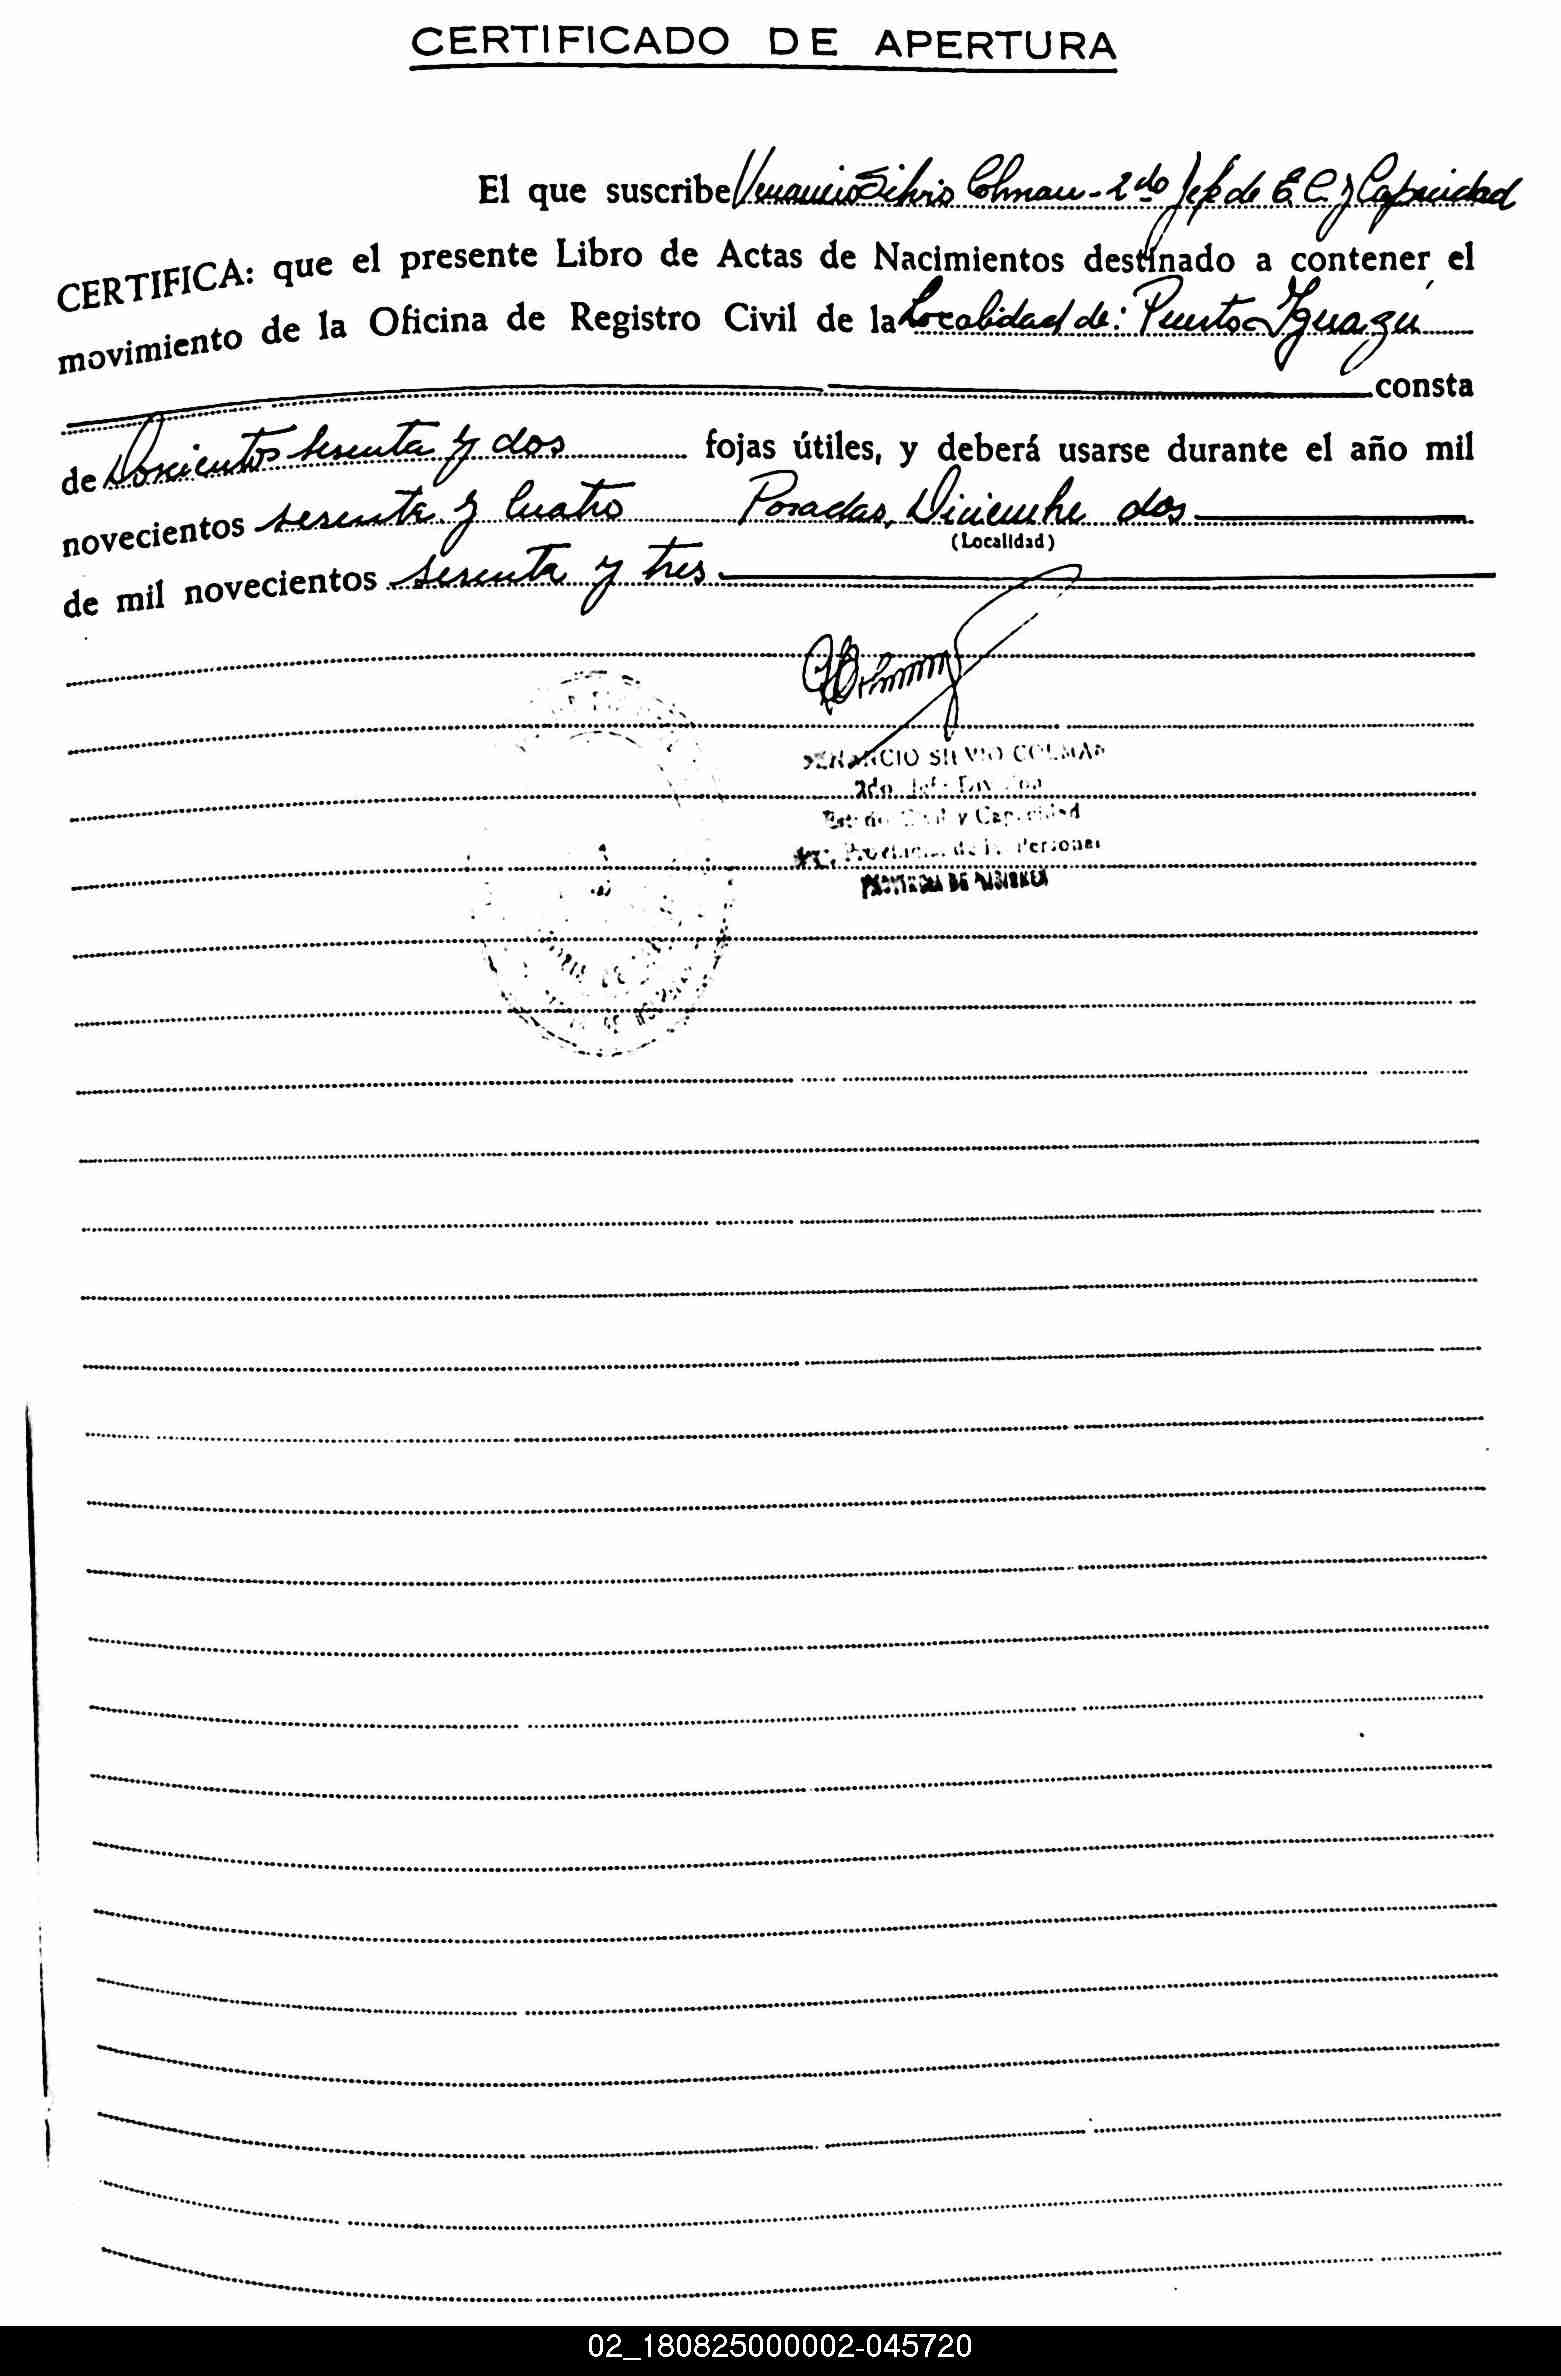 CERTIFICADO DE APERTURA
El que suscribe Venancio Silvio Colman - 2do Jefe de E C y Capacidad
CERTIFICA: que el presente Libro de Actas de Nacimientos destinado a contener el
movimiento de la Oficina de Registro Civil de la Localidad de: Puerto Iguazú
consta
de Doscientos sesenta y dos fojas útiles, y deberá usarse durante el año mil
novecientos sesenta y cuatro Posadas, Diciembre dos
(Localidad)
de mil novecientos sesenta y tres
VENANCIO SILVIO COLMAN
2do. Jefe
Estado Civil y Capacidad
Provincial de las Personas
PROVINCIA DE MISIONES
02_180825000002-045720